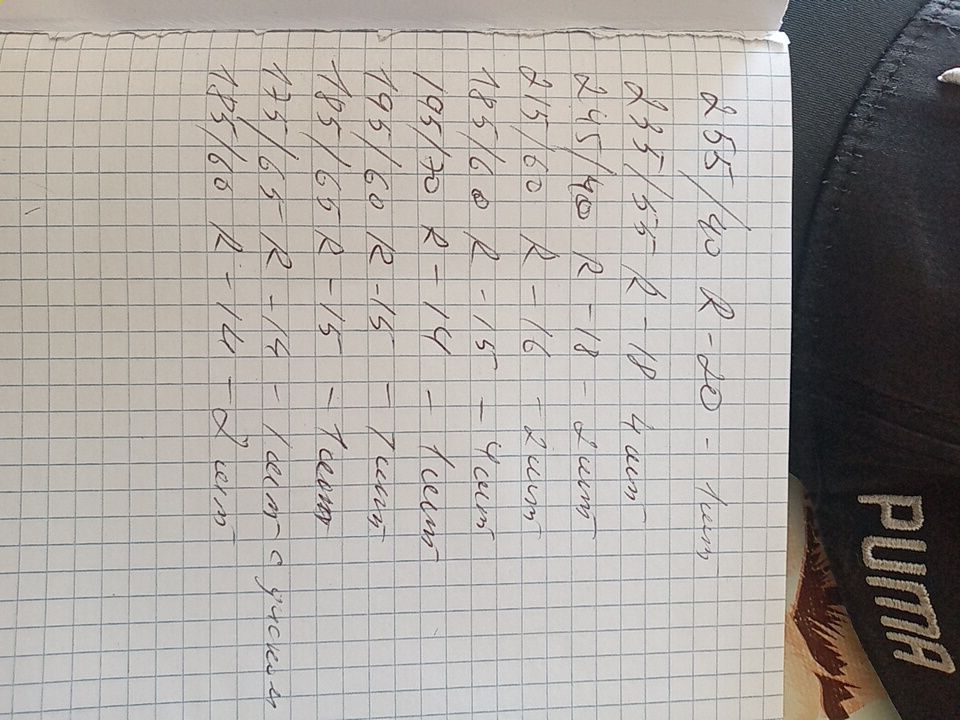 255/40 R-20 - 1шт
235/55 R-18 4шт
245/40 R-18 - 2шт
215/60 R-16 - 2шт
185/60 R-15 - 4шт
195/70 R-14 - 1шт
195/60 R-15 - 1шт
185/65 R-15 - 1шт
175/65 R-14 - 1шт с диском
185/60 R-14 - 2шт
PUMA